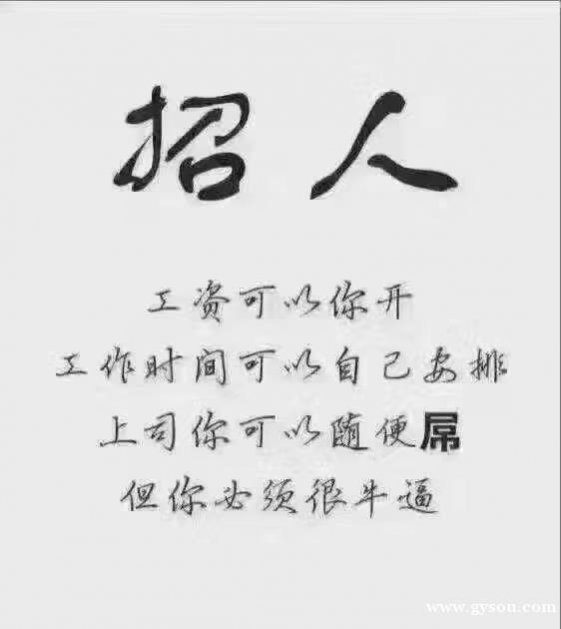 招人
工资可以你开
工作时间可以自己安排
上司你可以随便屌
但你必须很牛逼
www.gysou.com